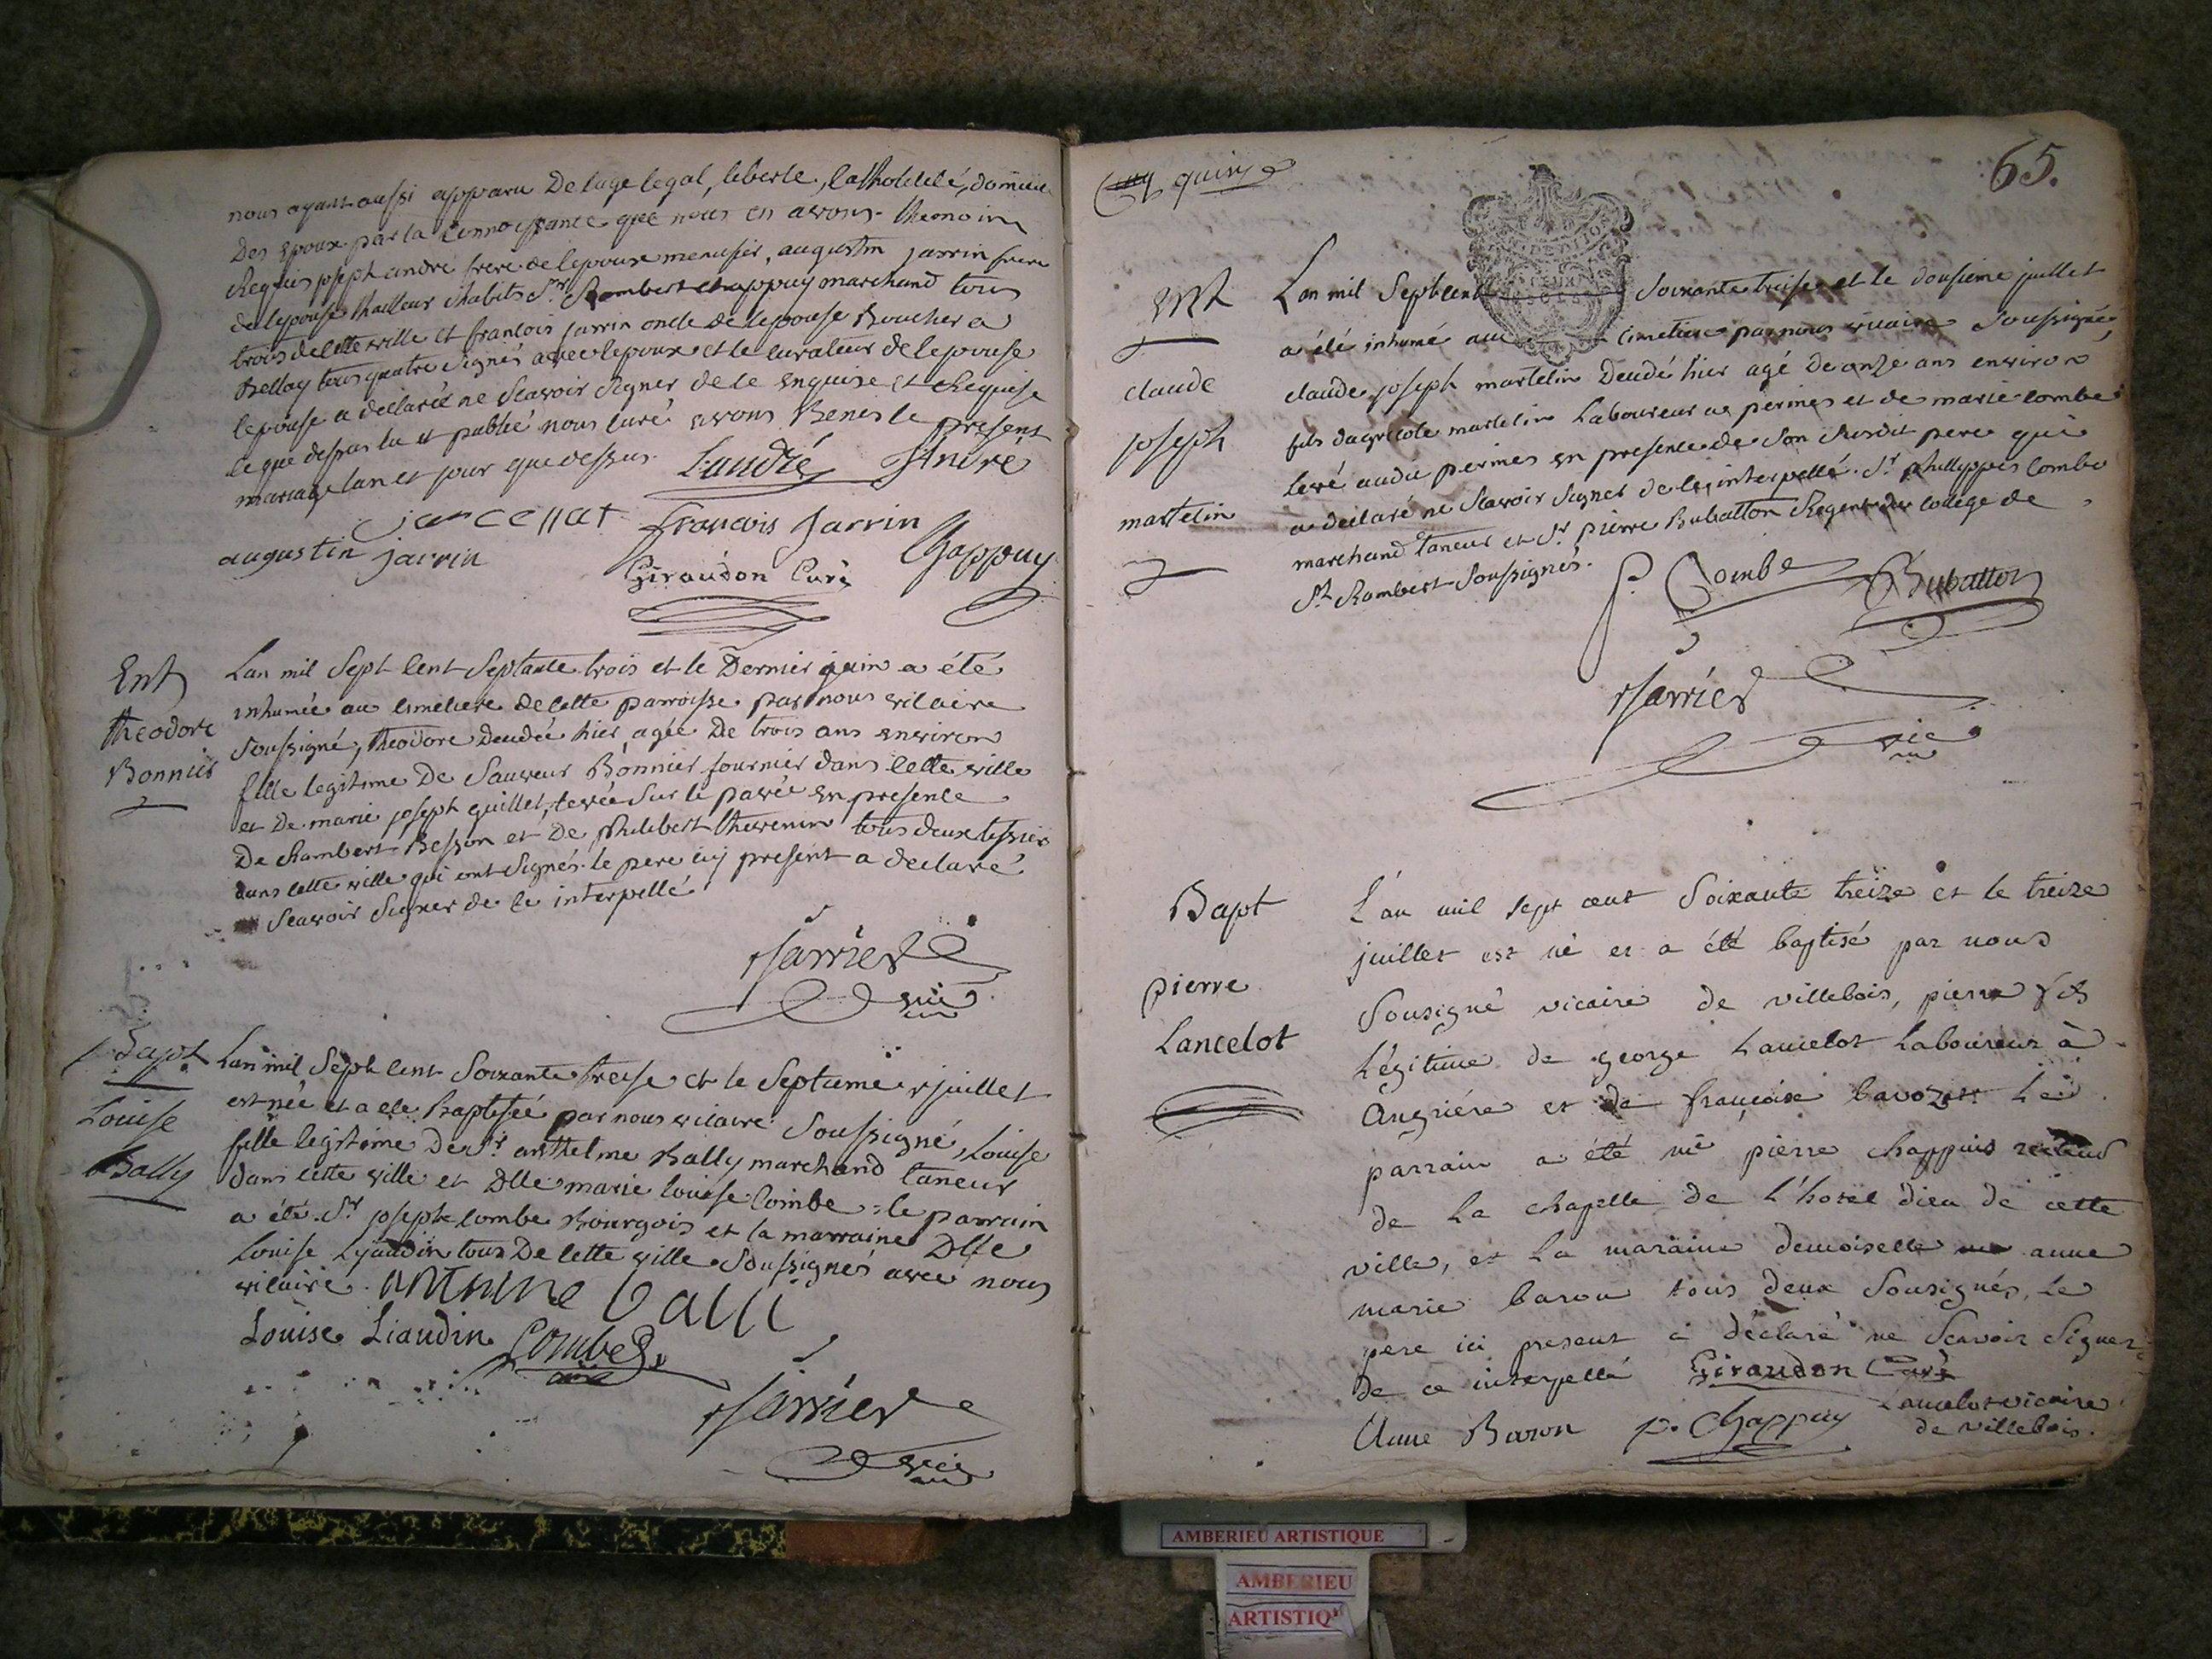 nous ayant aussi apparu De lage legal, liberté, catholicité, domicile
Des epoux par la connoissance que nous en avons. themoins
Requis joseph andré frere de lepoux menusier, augustin jarrin frere
de lepouse thailleur dhabits Sr. Rambert chappuy marchand tous
trois de cette ville et francois jarrin oncle de lepouse Boucher a
Bellay tous quatre signés avec lepoux et le curateur de lepouse
lepouse a declaré ne Scavoir signer de ce enquise et Requise
ce que dessus lu et publié nous curé avons Benis le present
mariage lan et jour que dessus. Landré JAndre
jancellat francois Jarrin
augustin jarrin Giraudon Curé Chappuy
Ent
theodore
Bonnier
Lan mil Sept cent Septante trois et le Dernier juin a été
inhumée au cimetiere de cette parroisse par nous vicaire
soussigné, theodore Decedée hier, agée De trois ans environ
fille legitime De Sauveur Bonnier fournier dans cette ville
et De marie joseph guillet, levée Sur le pavée en presence
De Rambert Besson et De philibert thevenin tous deux tissier
dans cette ville qui ont Signés. le pere icy present a declaré
Scavoir Signer de ce interpellé
Sarrier
vic
Bapt
Louise
Bally
Lan mil Sept cent Soixante treise et le Septieme juillet
est née et a ete baptisée par nous vicaire Soussigné, Louise
fille legitime De Sr. anthelme Bally marchand taneur
dans cette ville et Dlle marie louise Combe. le parrain
a été Sr joseph Combe Bourgois et la marraine Dlle
Louise Lyaudin tous De cette ville Soussignés avec nous
vicaire. Balli
Louise Liaudin Combe
Sarrier
vic
quinze
65.
Ent
claude
joseph
martelin
Lan mil Sept cent Soixante treise et le dousieme juillet
a été inhumé au cimetiere par nous vicaire Soussigné
claude joseph martelin Decedé hier agé De onze ans environ
fils dagricole martelin Laboureur a perines et de marie combe
levé audit perines en presence de Son susdit pere qui
a declaré ne Scavoir Signer de ce interpellé. Sr philippes Combe
marchand taneur et Sr pierre Bubatton Regent du college de
St. Rambert Soussignés.
P. Combe Bubatton
Sarrier
vic
Bapt
pierre
Lancelot
L'an mil sept cent Soixante treize et le treize
juillet est né et a été baptisé par nous
Sousigné vicaire de villebois, pierre fils
Légitime de george Lancelot Laboureur à
Angriére et de françoise bavozet Le
parrain a été me pierre chappuis recteur
de La chapelle de L'hotel dieu de cette
ville, et La maraine demoiselle anne
marie baron tous deux Sousignés, Le
pere ici present a déclaré ne Scavoir Signer
de ce interpellé Giraudon Curé
Anne Baron p. Chappuy Lancelot vicaire
de villebois.
AMBERIEU ARTISTIQUE
AMBERIEU
ARTISTIQ